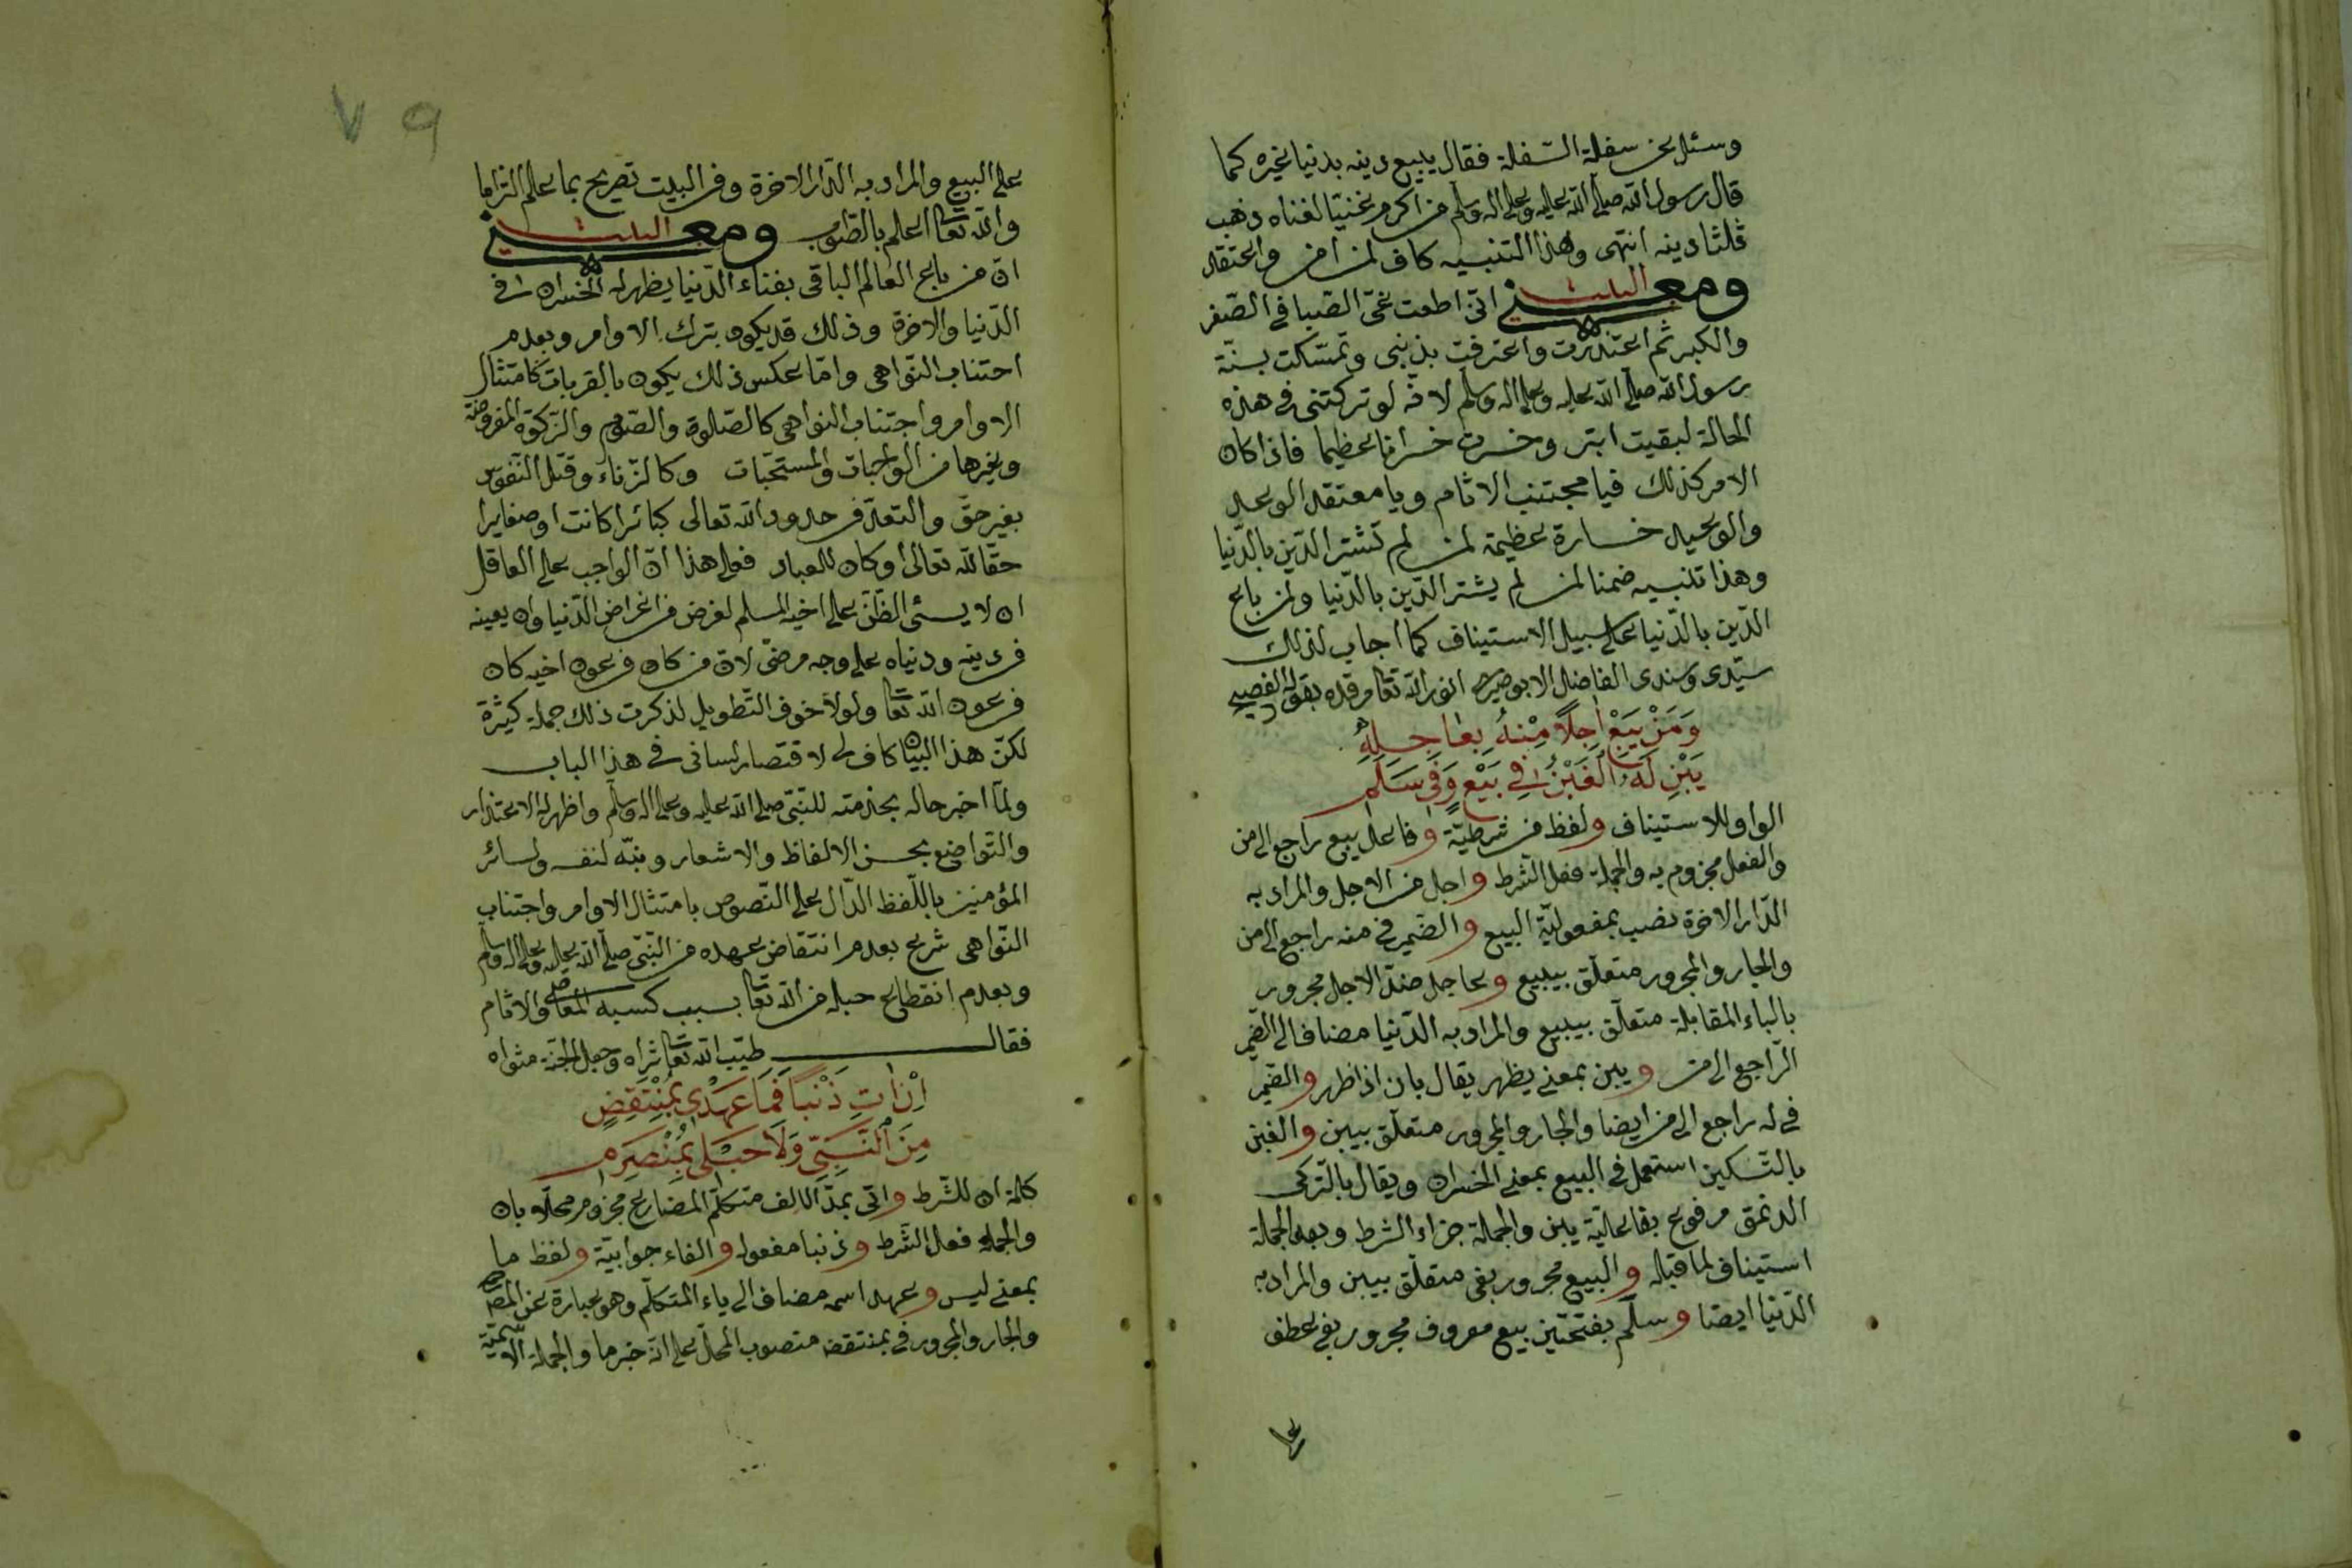 وسئل عن سفلة السّفلة فقال يبيع دينه بدنيا غيره كما
قال رسول اللّه صلّى اللّه عليه وعلى اله وسلّم من اكرم غنيّا لغناه ذهب
ثلثا دينه انتهى وهذا التنبيه كاف لمن امن واعتقد
ومعنى البيت انّى اطعت غىّ الصّبا فى الصّغر
والكبر ثم اعتذرت واعترفت بذنبى وتمسّكت بسنّة
رسول اللّه صلّى اللّه عليه وعلى اله وسلّم لانّه لو تركتنى فى هذه
الحالة لبقيت ابتر وخسرت خسرانا عظيما فاذا كان
الامر كذلك فيا مجتنب الاثام ويا معتقد الوعد
والوعيد خسارة عظيمة لمن لم تشتر الدّين بالدّنيا
وهذا تنبيه ضمنا لمن لم يشتر الدّين بالدّنيا ولمن باع
الدّين بالدّنيا على سبيل الاستيناف كما اجاب لذلك
سيّدى وسندى الفاضل الابوصيرى انور اللّه تعا مرقده بقوله الفصيح
وَمَنْ يَبِعْ اٰجِلًا مِنْهُ بِعَاجِلِهِ
يَبِنْ لَهُ الْغَبْنُ فِى بَيْعٍ وَفِى سَلَمِ
الواو للاستيناف ولفظ من شرطيّة وفاعل يبيع راجع الى من
والفعل مجزوم به والجملة فعل الشّرط واجل من الاجل والمراد به
الدّار الاخرة نصب بمفعوليّة البيع والضّمير فى منه راجع الى من
والجار والمجرور متعلّق بيبيع وعاجل ضدّ الاجل مجرور
بالباء المقابلة متعلّق بيبيع والمراد به الدّنيا مضاف الى الضّمير
الرّاجع الى من ويبن بمعنى يظهر يقال بان اذا ظهر والضّمير
فى له راجع الى من ايضا والجار والمجرور متعلّق بيبن والغبن
بالتّسكين استعمل فى البيع بمعنى الخسران ويقال بالتّركى
مرفوع بفاعليّة يبن والجملة جزاء الشرط وبعد الجملة
استيناف لما قبله والبيع مجرور بفى متعلّق بيبن والمراد به
الدّنيا ايضا وسلّم بفتحتين بيع معروف مجرور بفى عطف
على
٧٩
على البيع والمراد به الدّار الاخرة وفى البيت تصريح بما علم التزاما
واللّه تعا اعلم بالصّواب ومعنى البيت
انّ من باع العالم الباقى بفناء الدّنيا يظهر له الخسران فى
الدّنيا والاخرة وذلك قد يكون بترك الاوامر وبعدم
اجتناب النّواهى وامّا عكس ذلك يكون بالقربات كامتثال
الاوامر واجتناب النواهى كالصّلوة والصّوم والزّكوة المفروضة
وغيرها من الواجبات والمستحبّات وكالزّناء وقتل النّفوس
بغير حقّ والتعدّ فى حدود اللّه تعالى كبائرا كانت او صغايرا
حقّا للّه تعالى او كان للعباد فعلى هذا انّ الواجب على العاقل
ان لا يسئ الظّنّ على اخيه المسلم لغرض من اغراض الدّنيا وان يعينه
فى دينه ودنياه على وجه مرضىّ لانّ من كان فى عون اخيه كان
فى عون اللّه تعا ولولا خوف التّطويل لذكرت ذلك جملة كثيرة
لكنّ هذا البيان كاف لى لاقتصار لسانى فى هذا الباب
ولمّا اخبر حاله بخدمته للنّبىّ صلى اللّه عليه وعلى اله وسلّم واظهر له الاعتذار
والتّواضع بحسن الالفاظ والاشعار ونبّه لنفسه ولسائر
المؤمنين باللّفظ الدّال على النّصوص بامتثال الاوامر واجتناب
النّواهى شرع بعدم انتقاض عهده من النّبىّ صلّى اللّه عليه وعلى اله وسلّم
وبعدم انقطاع حبله من اللّه تعا بسبب كسبه المعاصى والاثام
فقال طيّب اللّه تعا ثراه وجعل الجنّة مثواه
اِنْ اٰتِ ذَنْبًا فَمَا عَهْدِى بِمُنْتَقِضٍ
مِنَ النَّبِىِّ وَلَا حَبْلِى بِمُنْصَرِمِ
كلمة ان للشّرط واتى بمدّ الالف متكلّم المضارع مجزوم محلّا بان
والجملة فعل الشّرط وذنبا مفعوله والفاء جوابيّة ولفظ ما
بمعنى ليس وعهد اسمه مضاف الى ياء المتكلّم وهو عبارة عن
والجار والمجرور فى بمنتقض منصوب المحلّ على انّه خبر ما والجملة الاسميّة